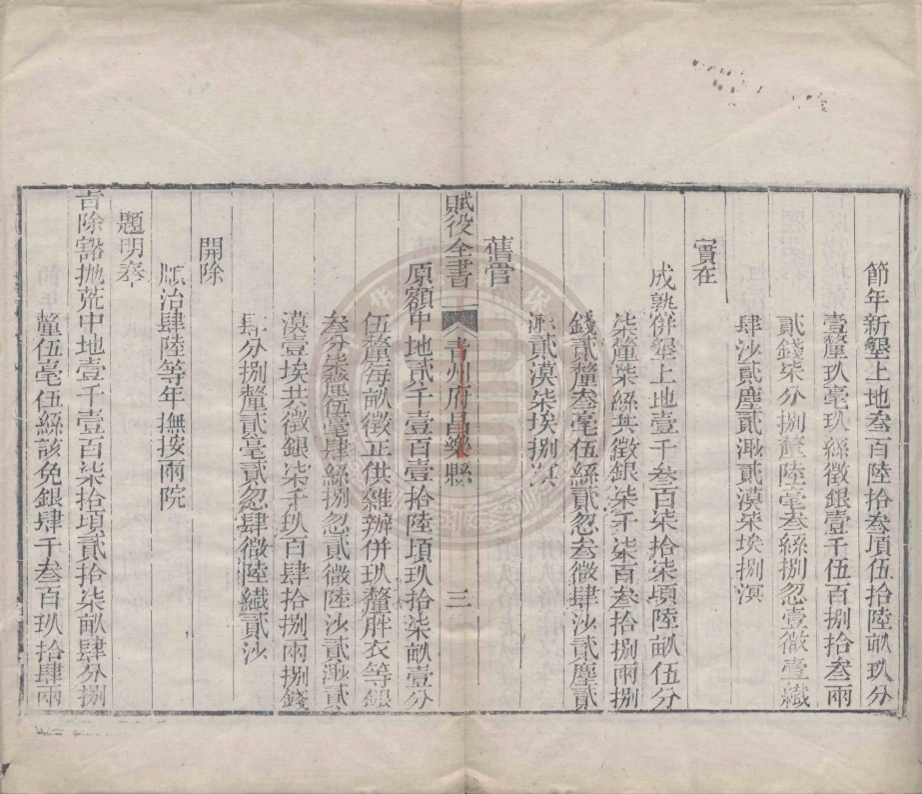 節年新墾上地叁百陸拾叁項伍拾陸畝玖分
壹釐玖毫玖絲徵銀壹千伍百捌拾叁兩
貳錢柒分捌釐陸毫叁絲捌忽壹微壹纖
肆沙貳塵貳渺貳漠柒埃捌溟
實在
成熟併墾上地壹千叁百柒拾柒頃陸畝伍分
柒釐柒絲共徵銀柒千柒百叁拾捌兩捌
錢貳釐叁毫伍絲貳忽叁微肆沙貳塵貳
渺貳漠柒埃捌溟
舊管
賦役全書 青州府昌樂縣 三
原額中地貳千壹百壹拾陸頃玖拾柒畝壹分
伍釐每畝徵正供雜辦併玖釐胖衣等銀
叁分柒釐伍毫肆絲捌忽貳微陸沙貳渺貳
漠壹埃共徵銀柒千玖百肆拾捌兩捌錢
肆分捌釐貳毫貳忽肆微陸纖貳沙
開除
順治肆陸等年撫按兩院
題明奉
旨除豁拋荒中地壹千壹百柒拾頃貳拾柒畝肆分捌
釐伍毫伍絲該免銀肆千叁百玖拾肆兩